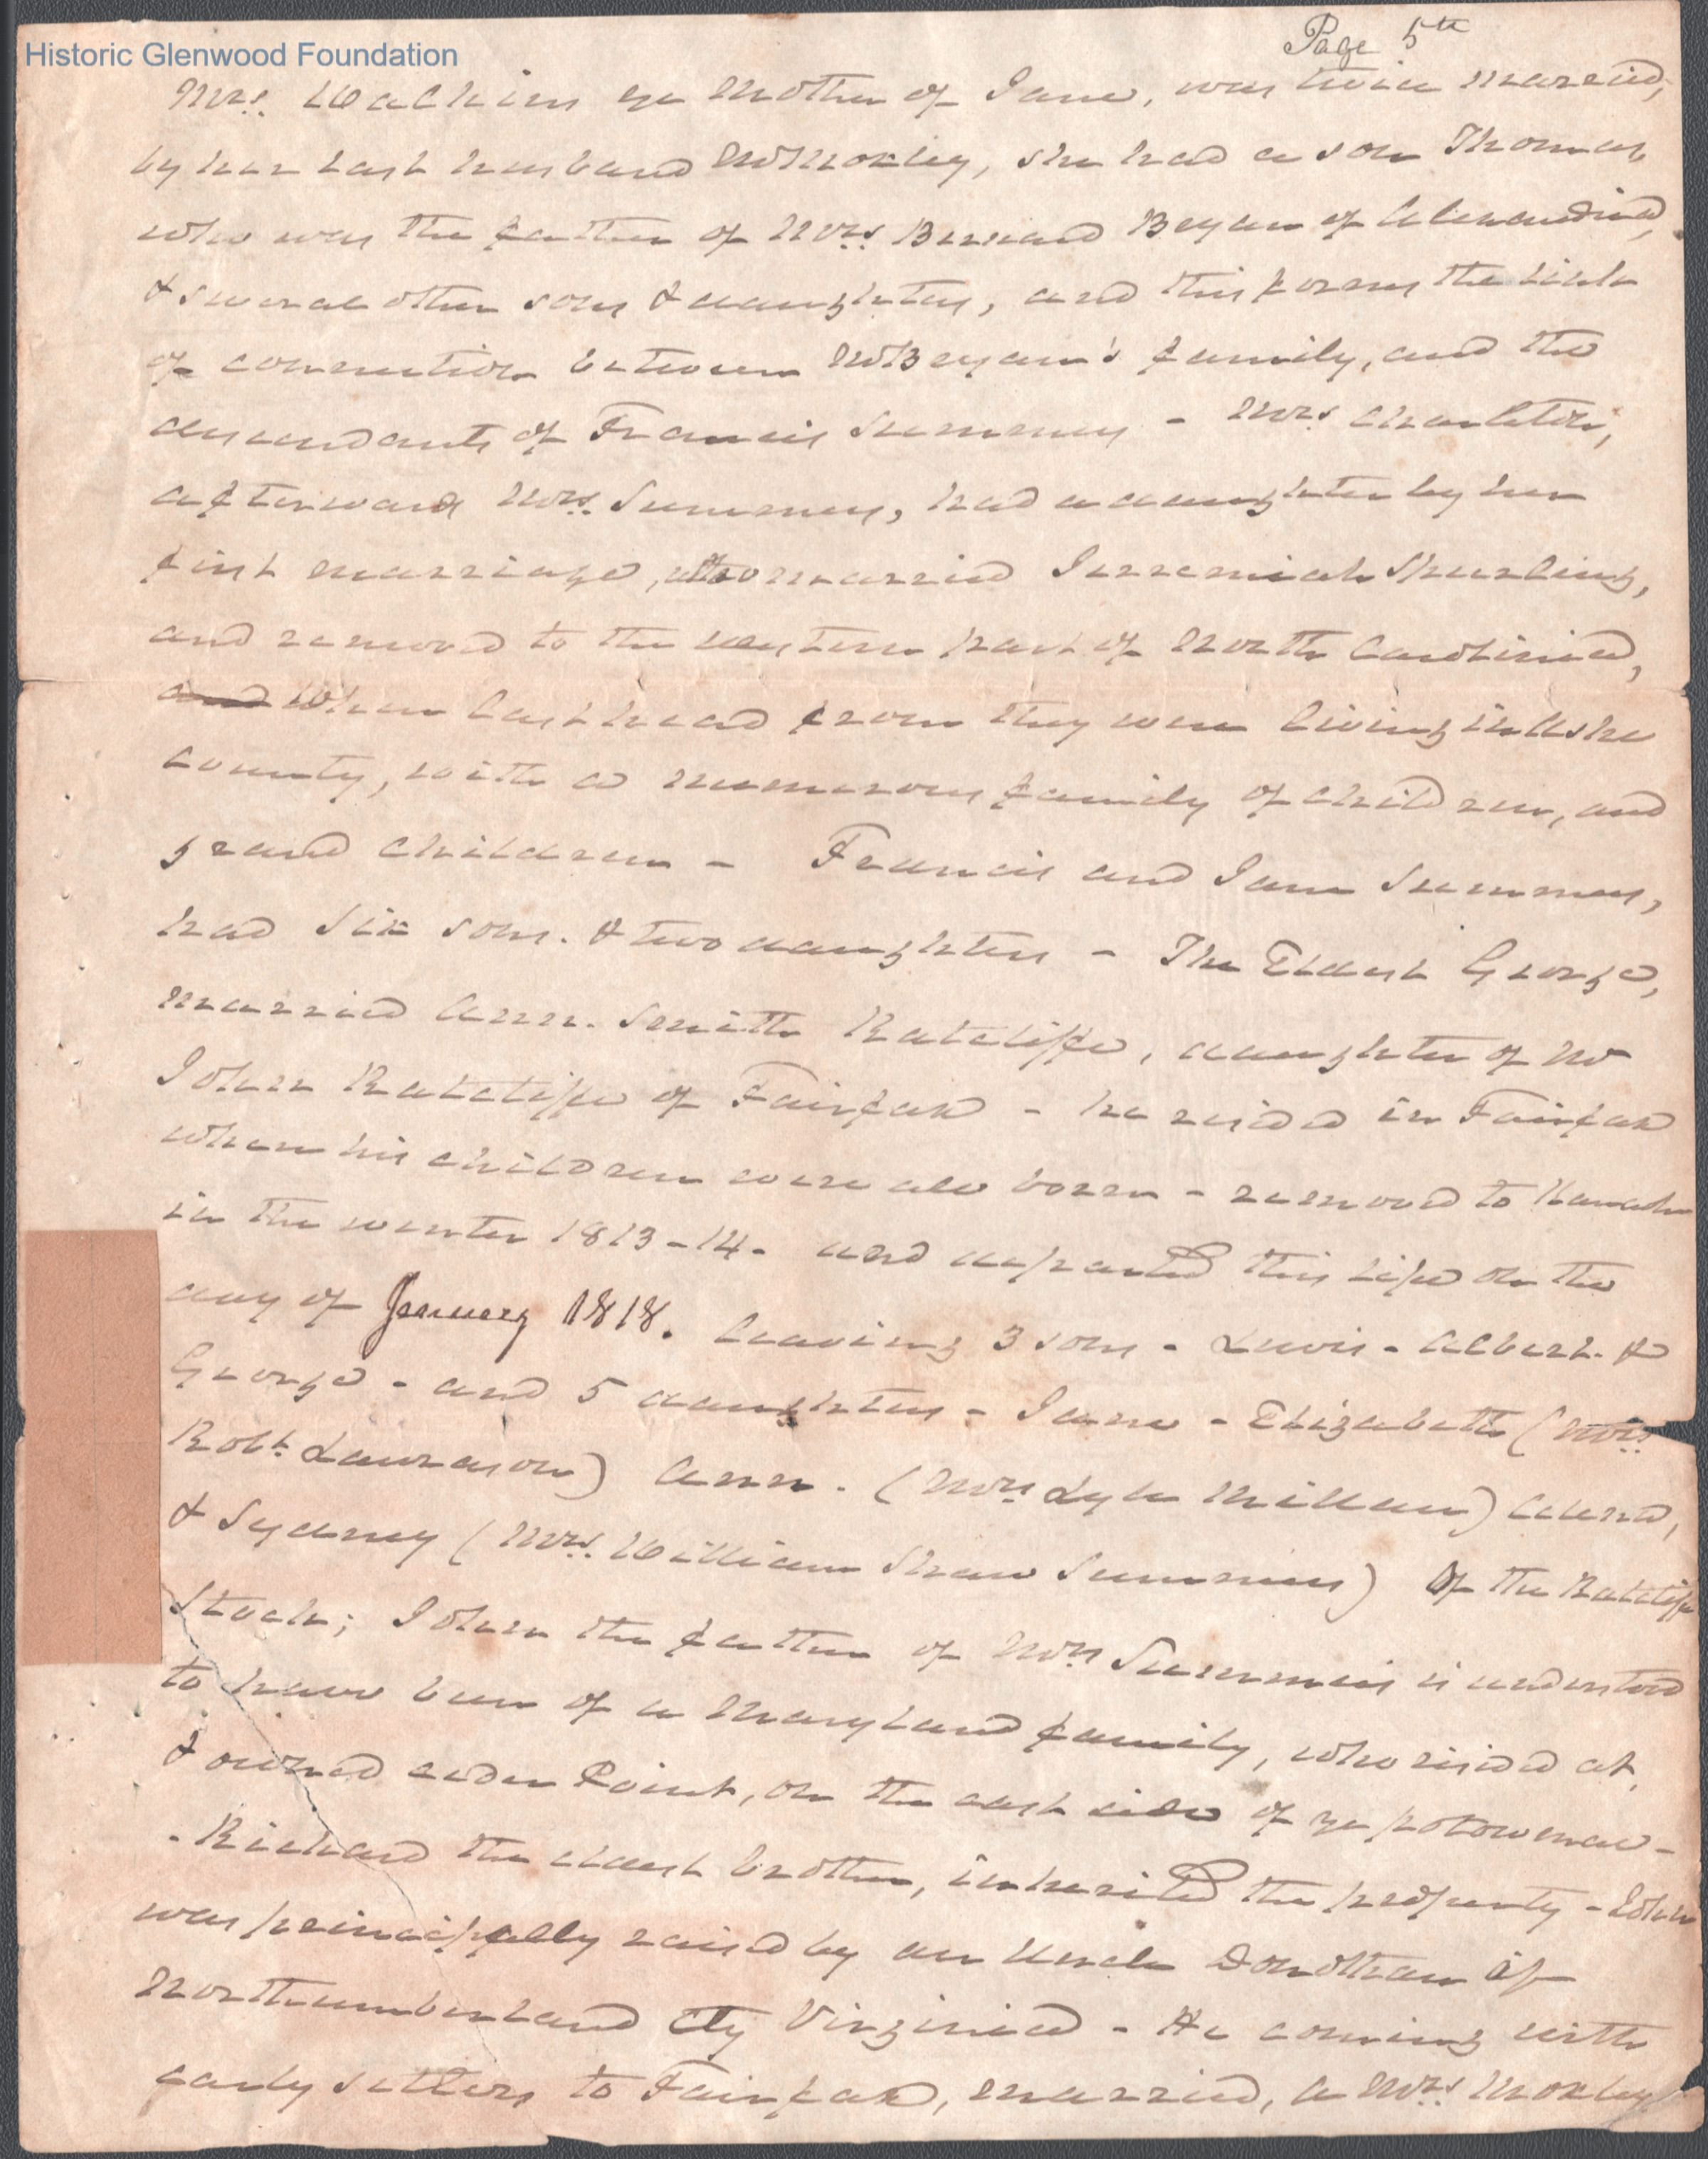 Page 5th
Historic Glenwood Foundation
Mrs. Watkins ye Mother of Jane, was twice married,
by her last husband Mr Moxley, she had a son Thomas,
who was the father of Mrs Bernard Bryan of Alexandria,
& several other sons & daughters, and this forms the link
of connection between Mr Bryan's family, and the
descendants of Francis Summers - Mrs Charlton,
afterward Mrs. Summers, had a daughter by her
first marriage, who married Jeremiah Spurling,
and removed to the western part of North Carolinia,
and When last heard from they were living in Ashe
County, with a numerous family of children, and
grand children - Francis and Jane Summers,
had Six sons. & two daughters - The Eldest George,
married Ann. Smith Ratcliffe, daughter of Mr
John Ratcliffe of Fairfax - he resided in Fairfax
where his children were all born - removed to Kanawha
in the winter 1813-14. and departed this life on the
day of January 1818. leaving 3 sons - Lewis - Albert. &
George - and 5 daughters - Jane - Elizabeth (Mrs.
Robt Lawrason) Ann. (Mrs Lyle Millan) Celina,
& Sydney (Mrs. William Shaw Summers) Of the Ratcliffe
Stock; John the father of Mrs Summers is understood
to have been of a Maryland family, who resided at,
& owned Cedar Point, on the east side of ye potowmac -
- Richard the eldest brother, inherited the property - John
was principally raised by an Uncle Donothan of
Northumberland Cty Virginia - He coming with
early settlers to Fairfax, married, a Mrs. Moxley